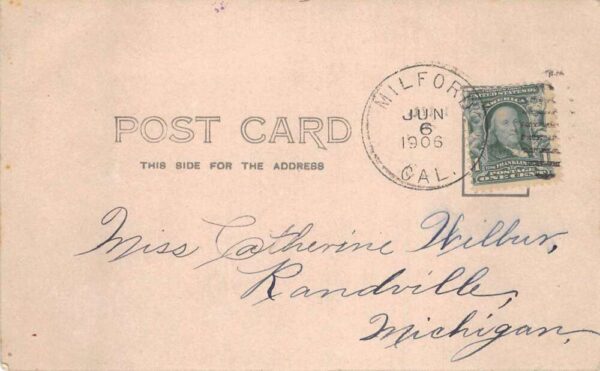 MILFORD
JUN
6
1906
CAL.
UNITED STATES OF
AMERICA
FRANKLIN
POSTAGE
ONE CENT
POST CARD
THIS SIDE FOR THE ADDRESS
Miss Catherine Wilbur,
Randville,
Michigan,